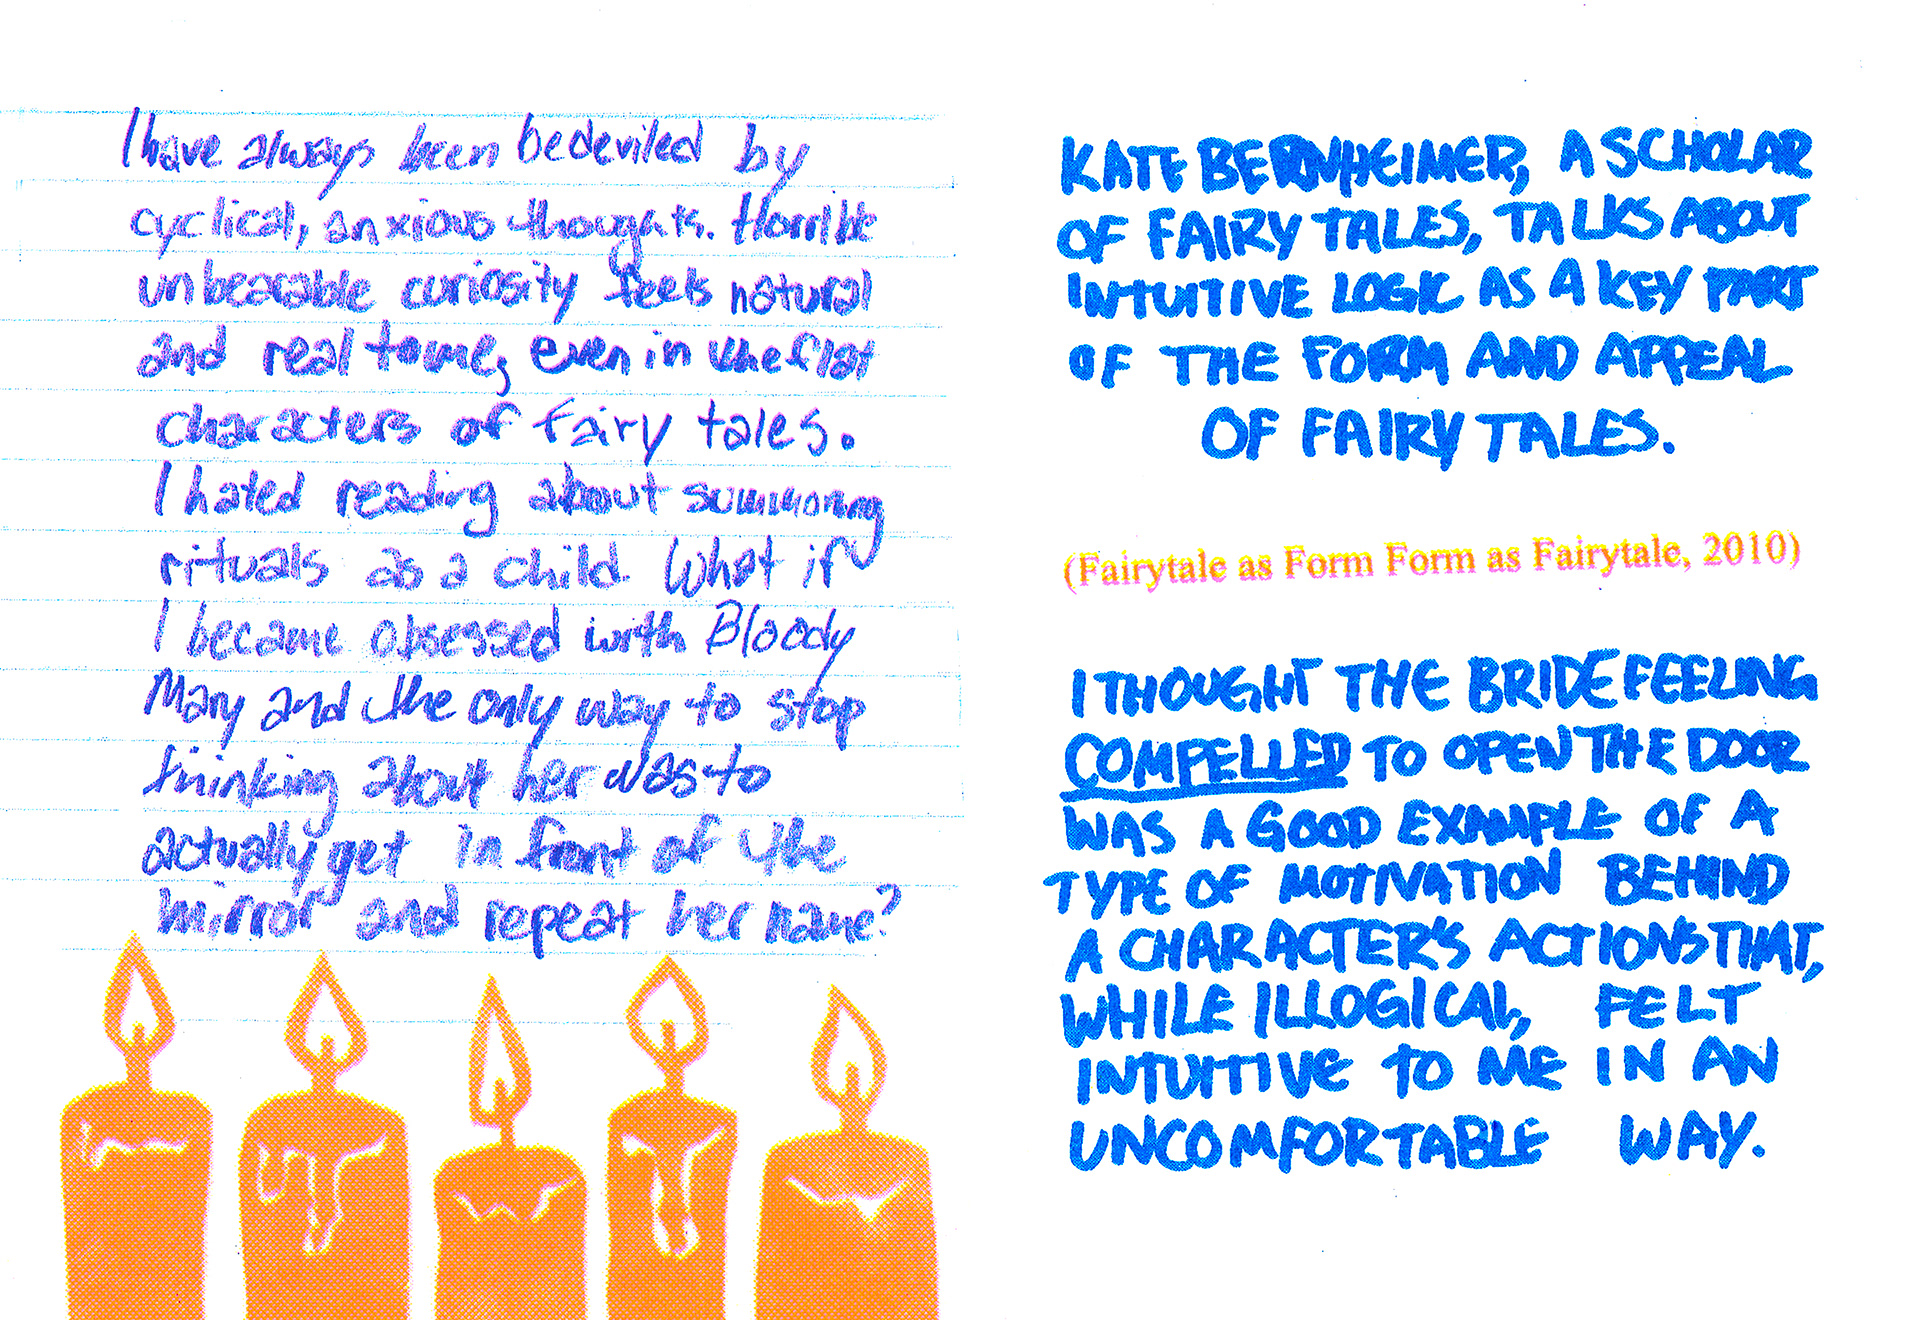 I have always been bedeviled by
cyclical, anxious thoughts. Horrible
unbearable curiosity feels natural
and real to me, even in the flat
characters of fairy tales.
I hated reading about summoning
rituals as a child. What if
I became obsessed with Bloody
Mary and the only way to stop
thinking about her was to
actually get in front of the
mirror and repeat her name?
KATE BERNHEIMER, A SCHOLAR
OF FAIRY TALES, TALKS ABOUT
INTUITIVE LOGIC AS A KEY PART
OF THE FORM AND APPEAL
OF FAIRY TALES.
(Fairytale as Form Form as Fairytale, 2010)
I THOUGHT THE BRIDE FEELING
COMPELLED TO OPEN THE DOOR
WAS A GOOD EXAMPLE OF A
TYPE OF MOTIVATION BEHIND
A CHARACTER'S ACTIONS THAT,
WHILE ILLOGICAL, FELT
INTUITIVE TO ME IN AN
UNCOMFORTABLE WAY.